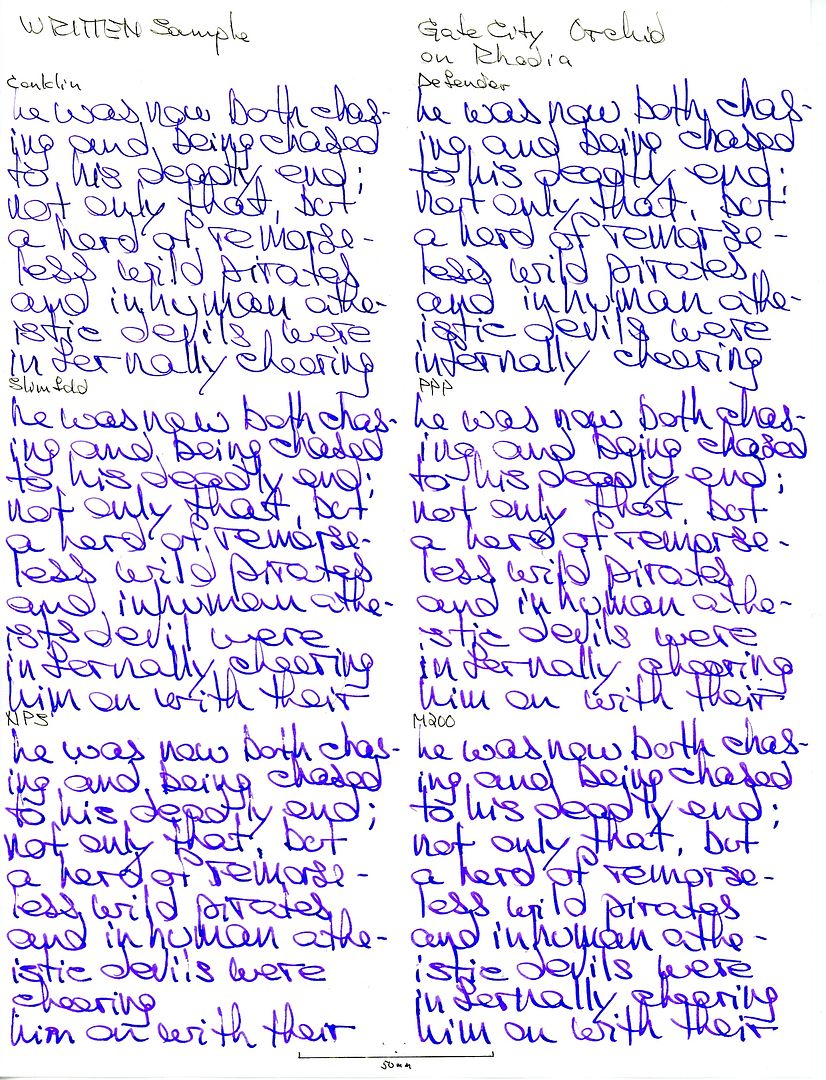 WRITTEN Sample
Gate City Orchid
on Rhodia
Conklin
he was now both chas-
ing and being chased
to his deadly end;
not only that, but
a herd of remorse-
less wild pirates
and inhuman athe-
istic devils were
infernally cheering
Defender
he was now both chas-
ing and being chased
to his deadly end;
not only that, but
a herd of remorse-
less wild pirates
and inhuman athe-
istic devils were
infernally cheering
Slimfold
he was now both chas-
ing and being chased
to his deadly end;
not only that, but
a herd of remorse-
less wild pirates
and inhuman athe-
ists devil were
infernally cheering
him on with their
PPP
he was now both chas-
ing and being chased
to his deadly end;
not only that, but
a herd of remorse-
less wild pirates
and inhuman athe-
istic devils were
infernally cheering
him on with their
NPS
he was now both chas-
ing and being chased
to his deadly end;
not only that, but
a herd of remorse-
less wild pirates
and inhuman athe-
istic devils were
cheering
him on with their
M200
he was now both chas-
ing and being chased
to his deadly end;
not only that, but
a herd of remorse-
less wild pirates
and inhuman athe-
istic devils were
infernally cheering
him on with their
50mm